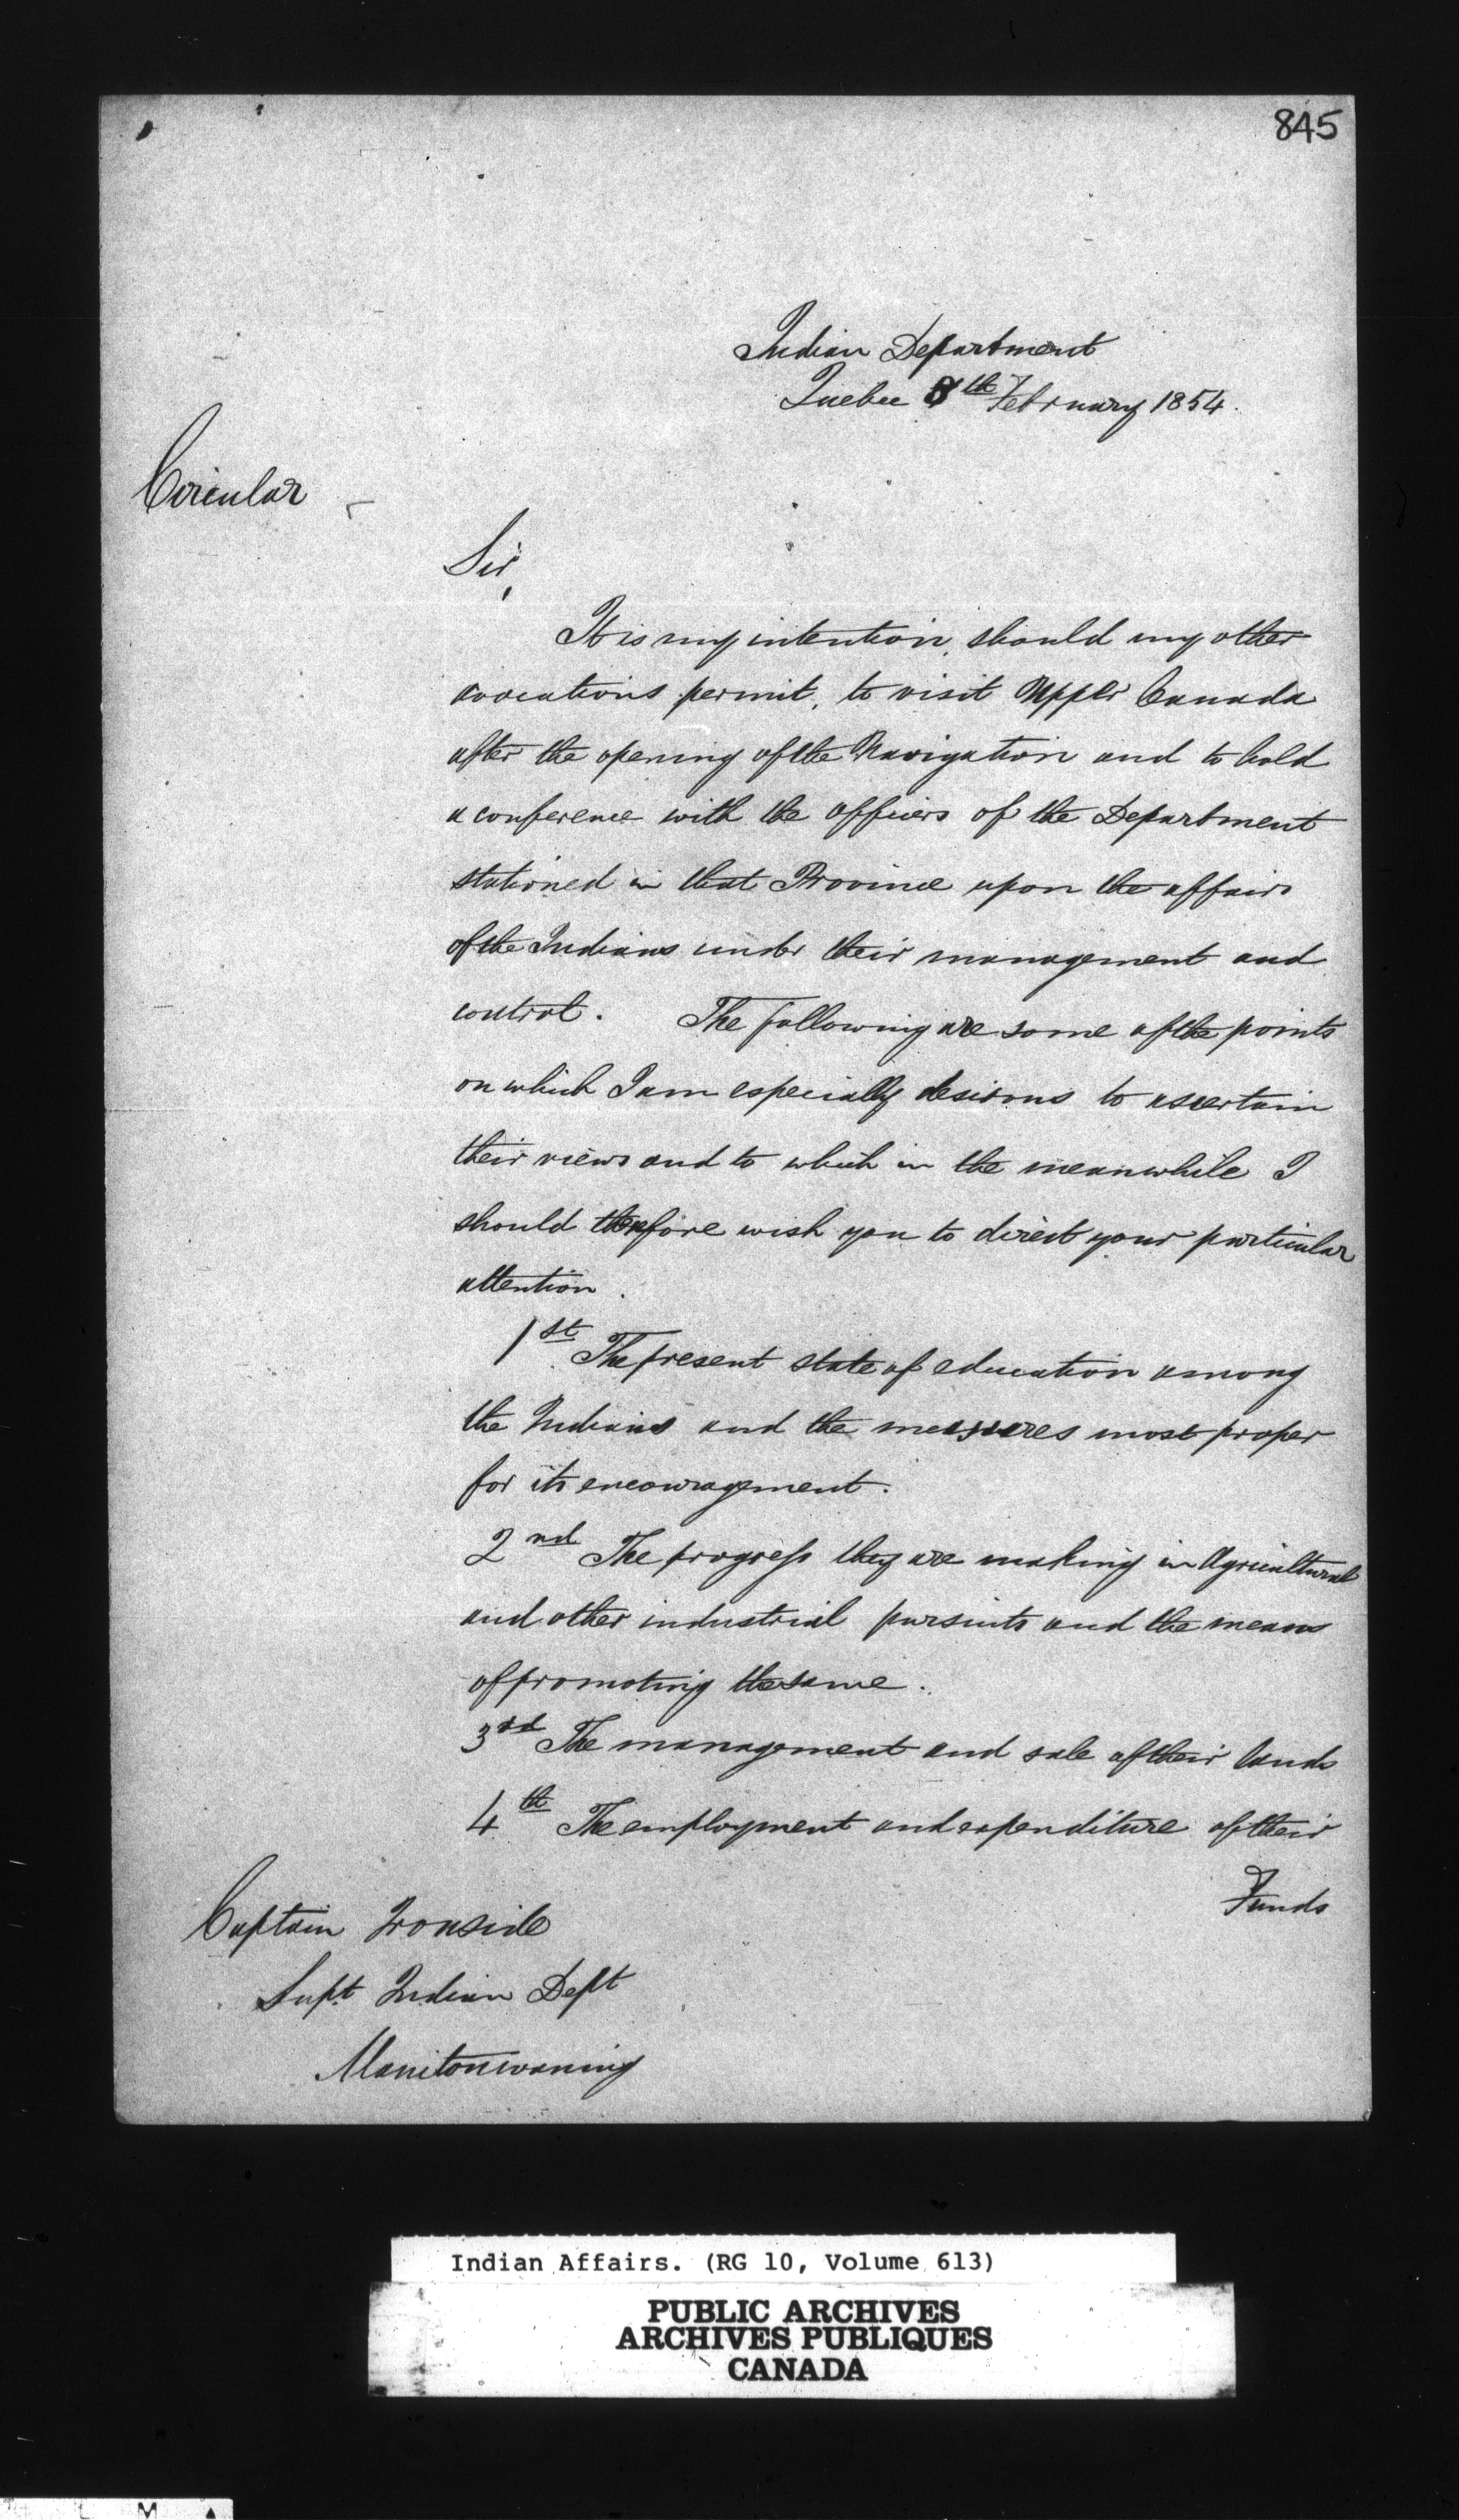 845
Indian Department
Quebec 8th February 1854.
Circular
Sir,
It is my intention, should my other
avocations permit, to visit Upper Canada
after the opening of the Navigation and to hold
a conference with the officers of the Department
stationed in that Province upon the affairs
of the Indians under their management and
control. The following are some of the points
on which I am especially desirous to ascertain
their views and to which in the meanwhile I
should therefore wish you to direct your particular
attention.
1st The present state of education among
the Indians and the measures most proper
for its encouragement.
2nd The progress they are making in Agricultural
and other industrial pursuits and the means
of promoting the same.
3rd The management and sale of their lands
4th The employment and expenditure of their
Funds
Captain Ironside
Supt. Indian Dept
Manitouwaning
Indian Affairs. (RG 10, Volume 613)
PUBLIC ARCHIVES
ARCHIVES PUBLIQUES
CANADA